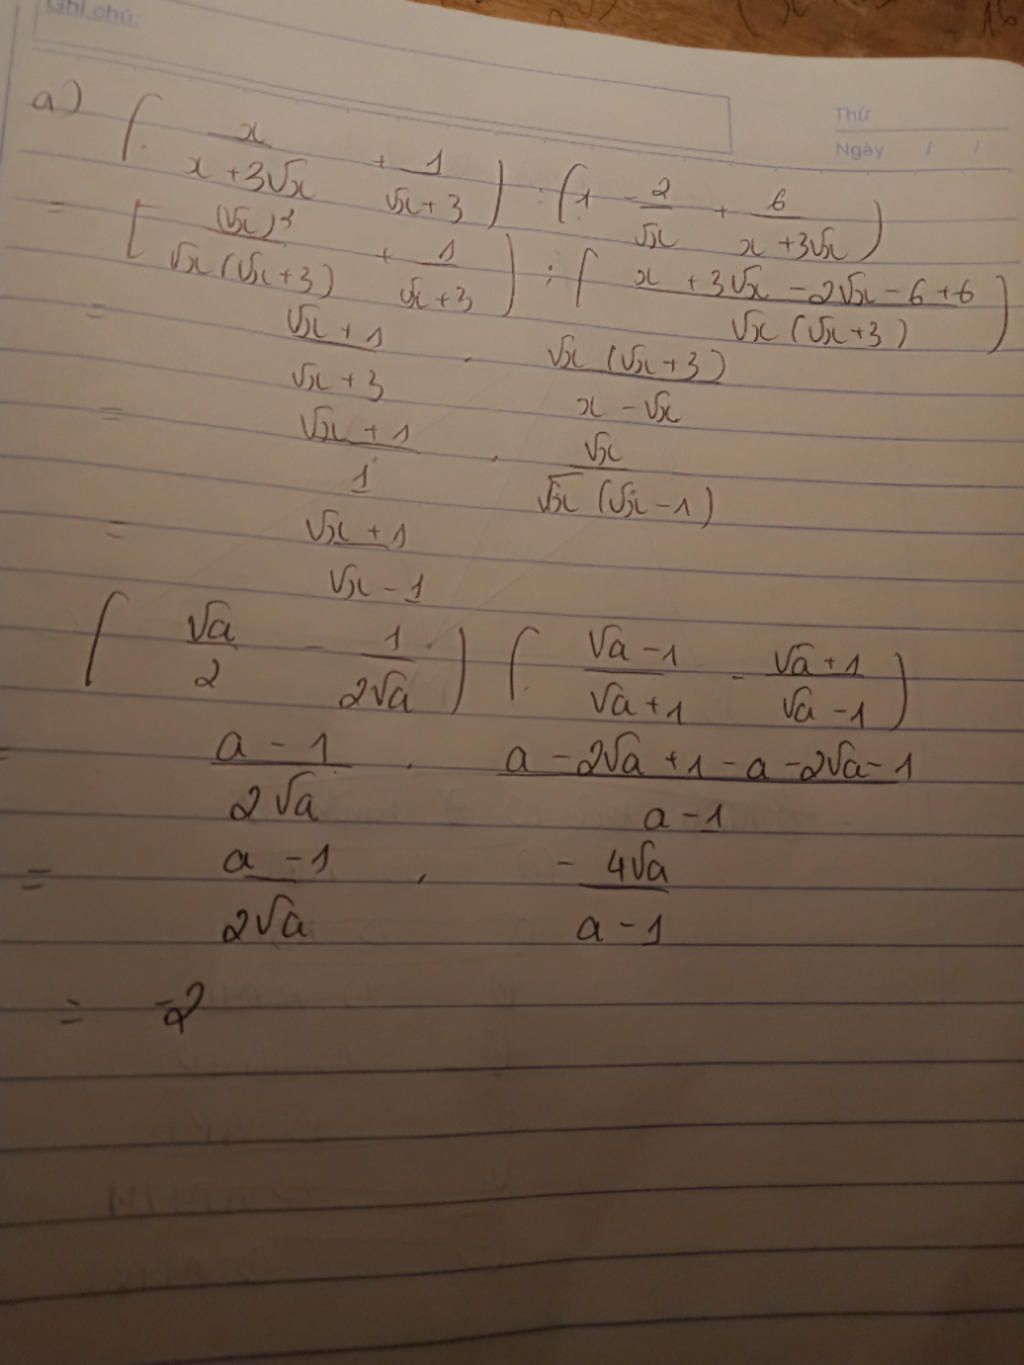 Ghi chú:
Thứ
Ngày / /
a) ( x/(x+3√x) + 1/(√x+3) ) : ( 1 - 2/√x + 6/(x+3√x) )
= [ (√x)²/(√x(√x+3)) + 1/(√x+3) ) : ( (x+3√x-2√x-6+6)/(√x(√x+3)) )
= (√x+1)/(√x+3) . (√x(√x+3))/(x-√x)
= (√x+1)/1 . √x/(√x(√x-1))
= (√x+1)/(√x-1)
( √a/2 - 1/(2√a) ) ( (√a-1)/(√a+1) - (√a+1)/(√a-1) )
= (a-1)/(2√a) . (a-2√a+1-a-2√a-1)/(a-1)
= (a-1)/(2√a) . -4√a/(a-1)
= -2